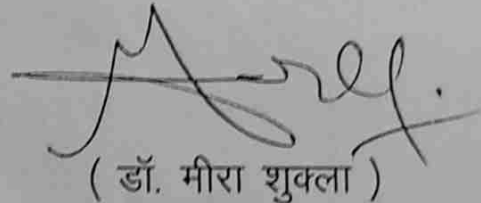 ( डॉ. मीरा शुक्ला )